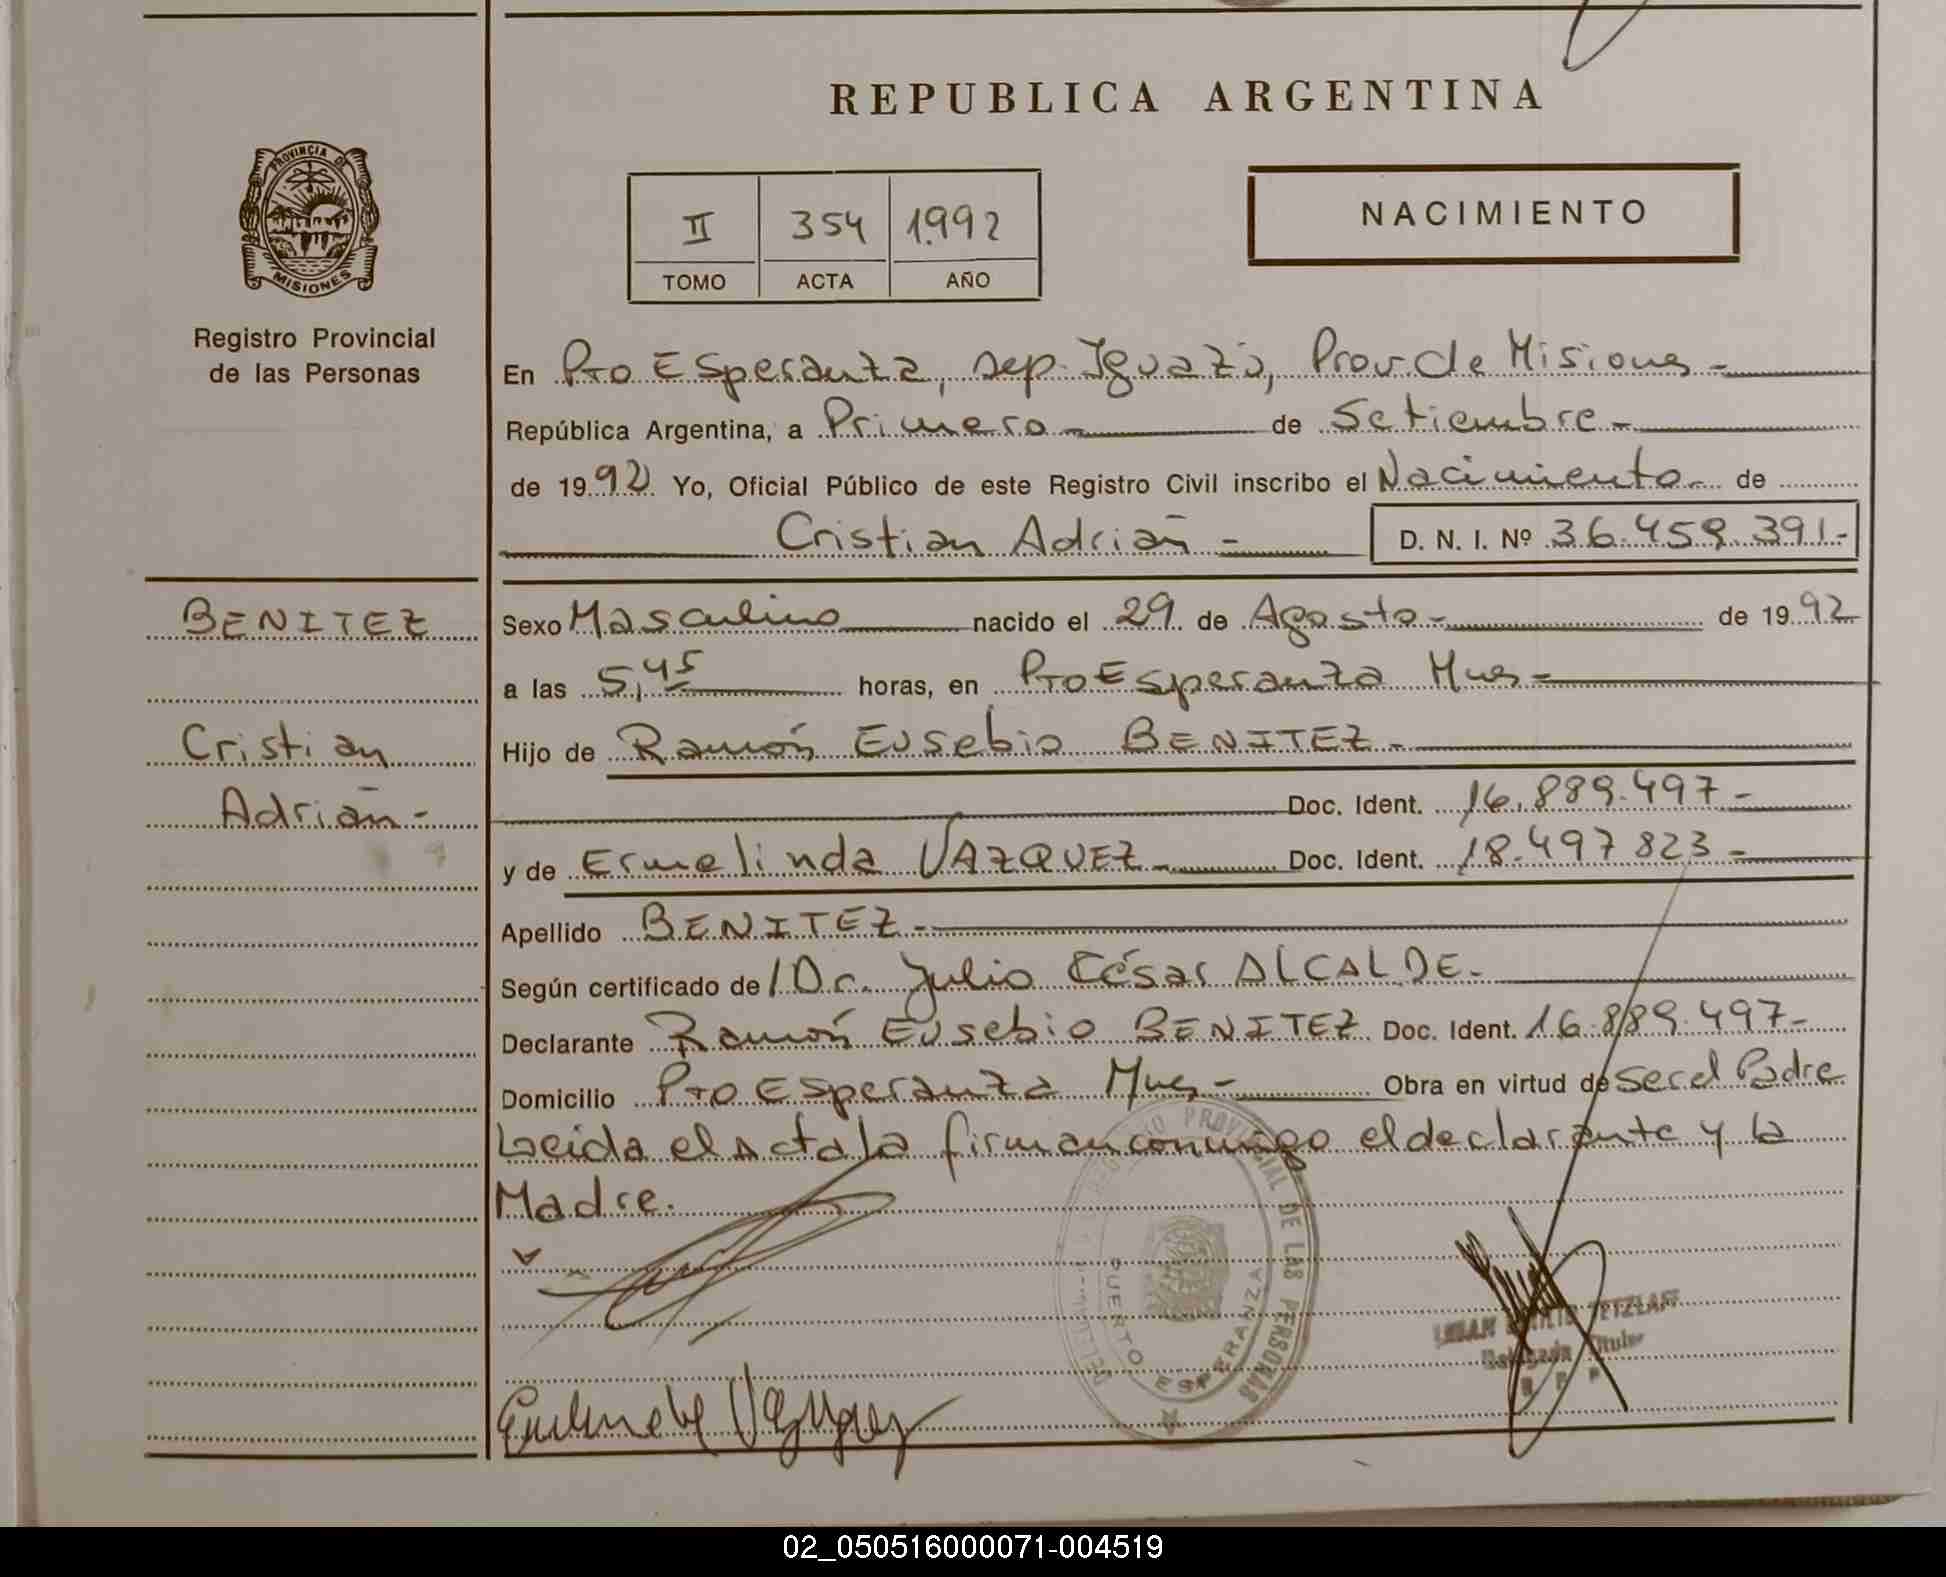 REPUBLICA ARGENTINA
PROVINCIA DE
MISIONES
Registro Provincial
de las Personas
II 354 1.992
TOMO ACTA AÑO
NACIMIENTO
En Pto Esperanza, Dep. Iguazú, Prov. de Misiones -
República Argentina, a Primero - de Setiembre -
de 1992 Yo, Oficial Público de este Registro Civil inscribo el Nacimiento - de
Cristian Adrián - D. N. I. Nº 36.459.391.-
BENITEZ
Cristian
Adrián -
Sexo Masculino nacido el 29 de Agosto - de 1992
a las 5,45 horas, en Pto Esperanza Mnes -
Hijo de Ramón Eusebio BENITEZ -
Doc. Ident. 16.889.497 -
y de Ermelinda VAZQUEZ - Doc. Ident. 18.497.823 -
Apellido BENITEZ -
Según certificado de / Dr. Julio César ALCALDE -
Declarante Ramón Eusebio BENITEZ Doc. Ident. 16.889.497 -
Domicilio Pto Esperanza Mnes - Obra en virtud de ser el Padre
Leida el Acta la firman conmigo el declarante y la
Madre.
REGISTRO PROVINCIAL DE LAS PERSONAS
PUERTO ESPERANZA
TETZLAFF
Delegada Titular
R P P
Vazquez
02_050516000071-004519